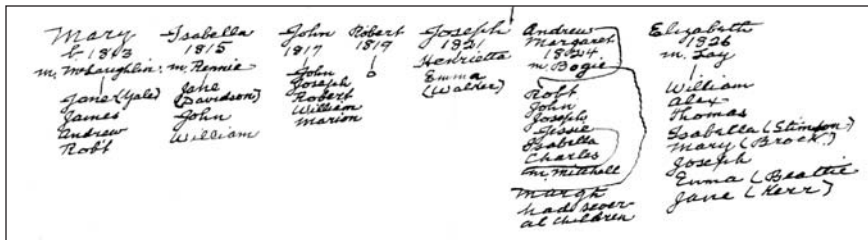 Mary
b. 1813
m. McLaughlin
Jane (Yale)
James
Andrew
Rob't
Isabella
1815
m. Rennie
Jane
(Davidson)
John
William
John
1817
John
Joseph
Robert
William
Marion
Robert
1819
0
Joseph
1821
Henrietta
Emma
(Walker)
Andrew
Margaret
1824
m. Bogie
Rob't
John
Joseph
Jessie
Isabella
Charles
m. Mitchell
Margh
had sever
al children
Elizabeth
1826
m. Fay
William
Alex
Thomas
Isabella (Stimson)
Mary (Brock)
Joseph
Emma (Beattie
Jane (Kerr)